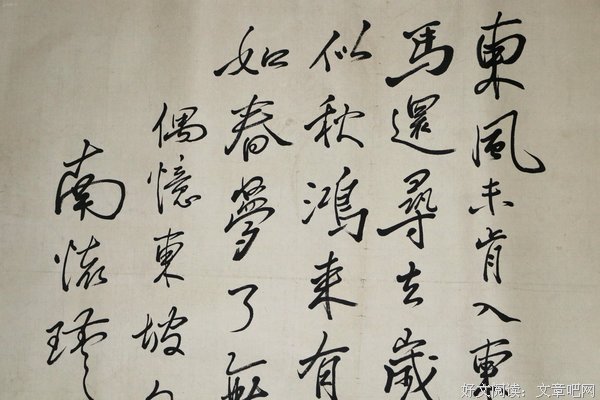 東風未肯入東
馬還尋去歲
似秋鴻来有
如春夢了無
偶憶東坡
南懷瑾
好文阅读：文章吧网